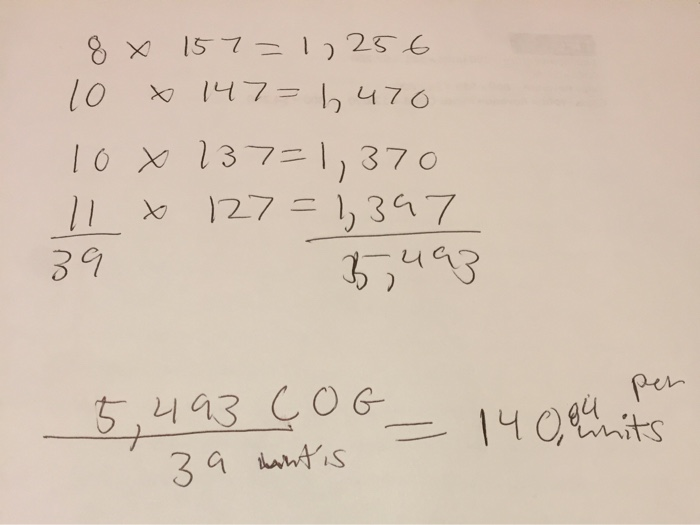 8 x 157 = 1,256
10 x 147 = 1,470
10 x 137 = 1,370
11 x 127 = 1,397
39 5,493
5,493 COG = 140.84 per units
39